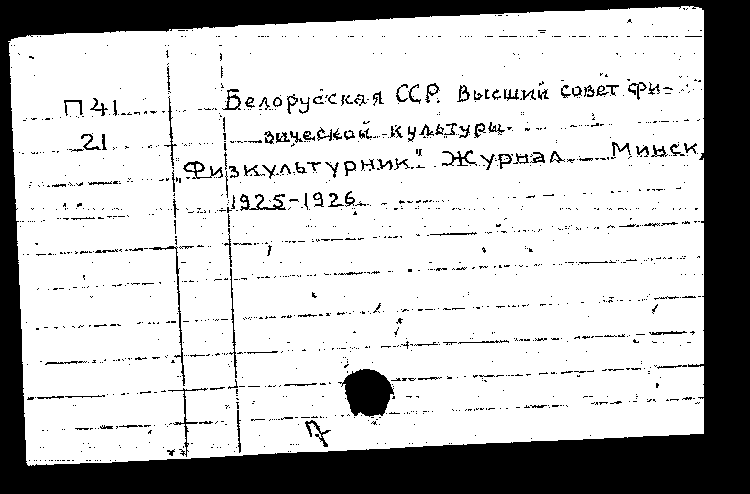 П 41
21
Белорусская ССР. Высший совет фи-
зической культуры.
„Физкультурник." Журнал Минск,
1925-1926.